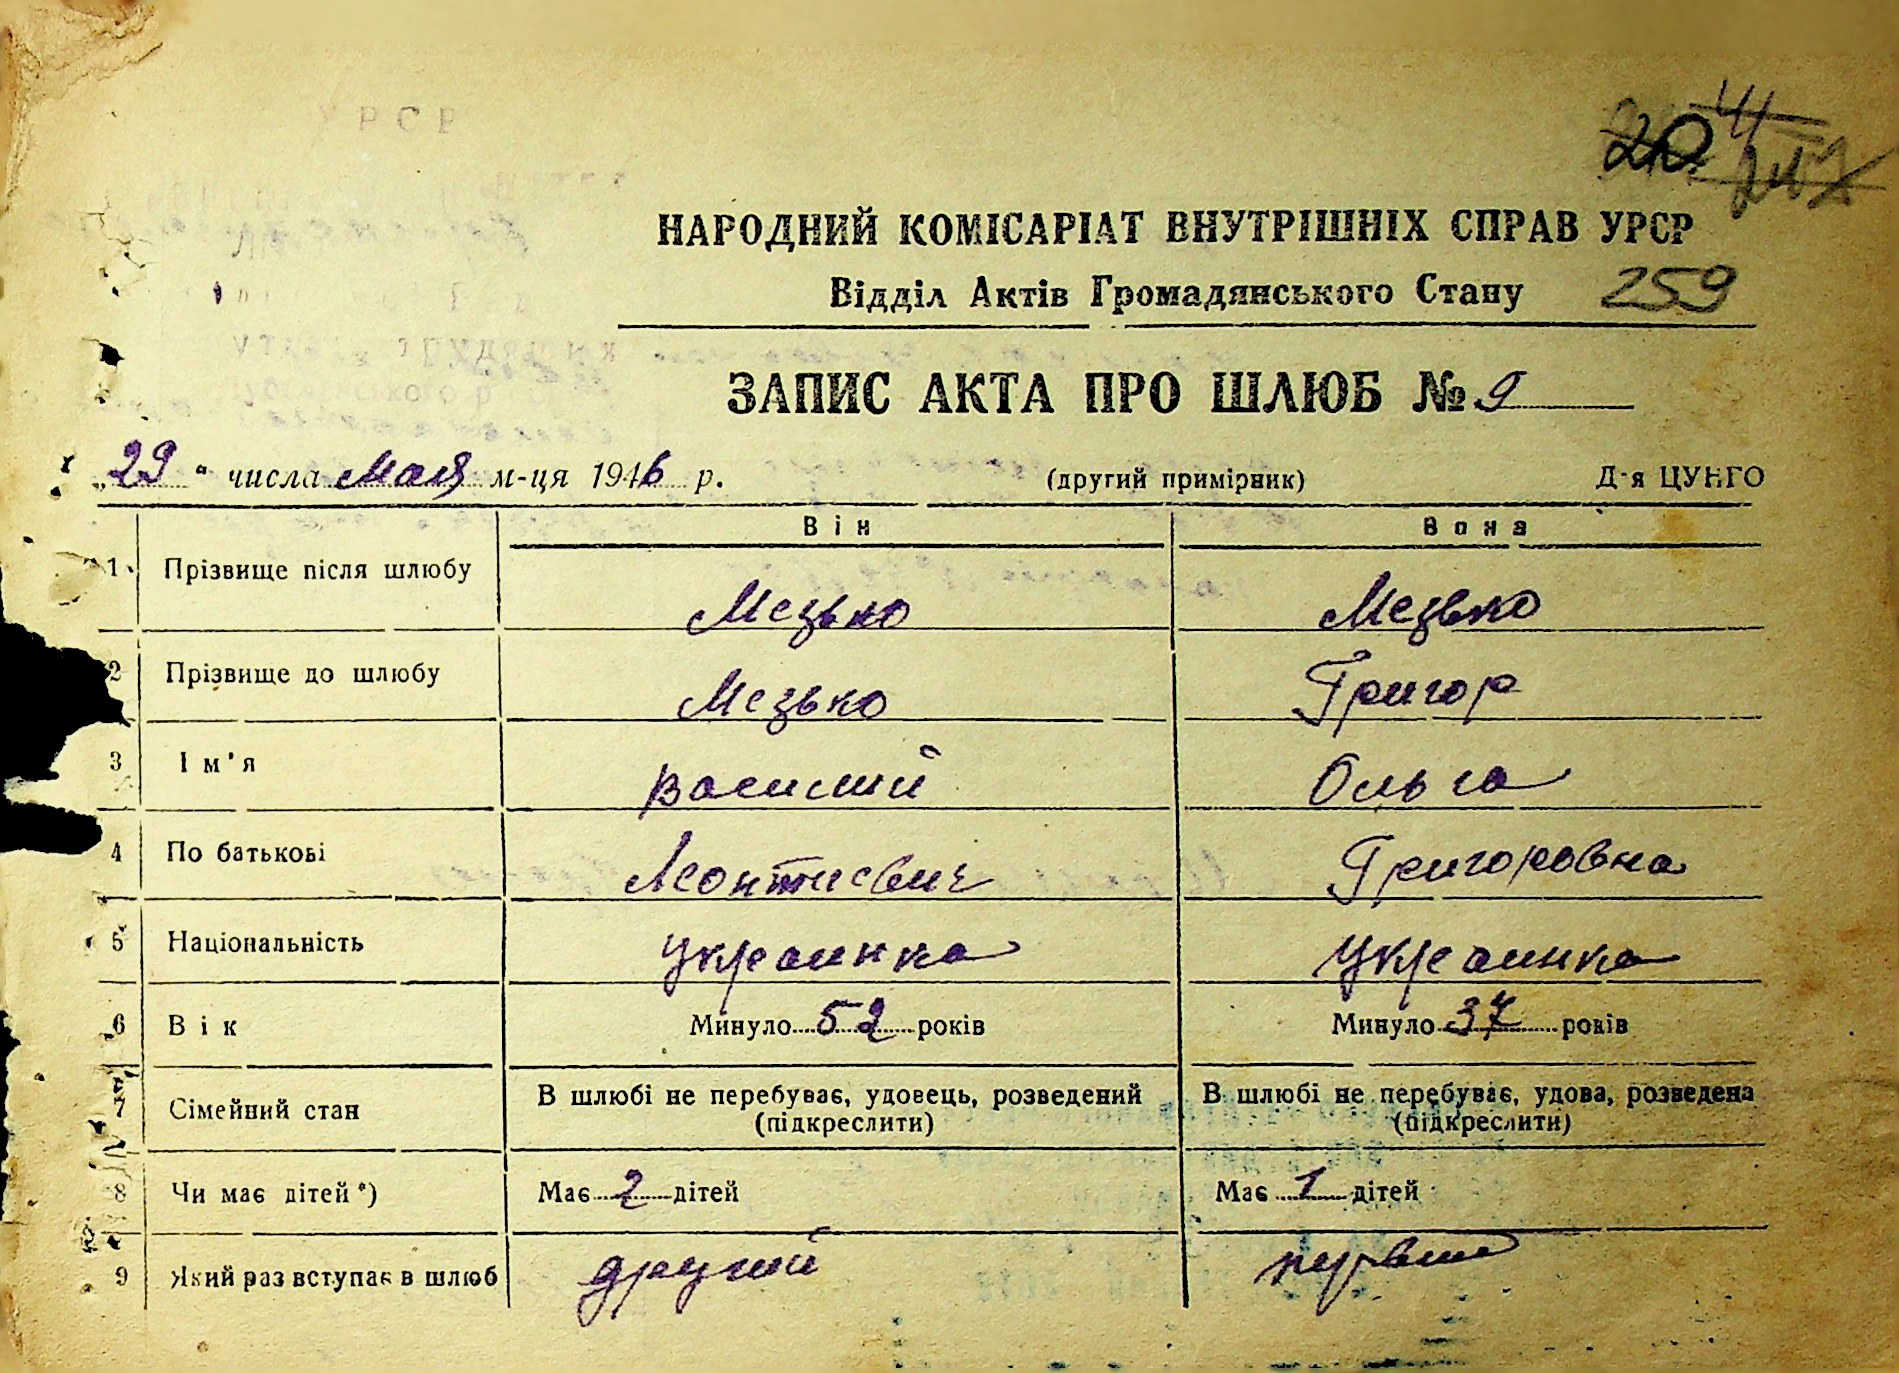 20
НАРОДНИЙ КОМІСАРІАТ ВНУТРІШНІХ СПРАВ УРСР
Відділ Актів Громадянського Стану 259
ЗАПИС АКТА ПРО ШЛЮБ № 9
„29“ числа Мая м-ця 1946 р. (другий примірник) Д-я ЦУНГО
Він Вона
1 Прізвище після шлюбу Мезько Мезько
2 Прізвище до шлюбу Мезько Григор
3 Ім'я василий Ольга
4 По батькові Леонтиевич Григоровна
5 Національність украинка украинка
6 Вік Минуло 52 років Минуло 37 років
7 Сімейний стан В шлюбі не перебуває, удовець, розведений (підкреслити) В шлюбі не перебуває, удова, розведена (підкреслити)
8 Чи має дітей*) Має 2 дітей Має 1 дітей
9 Який раз вступає в шлюб другий первий